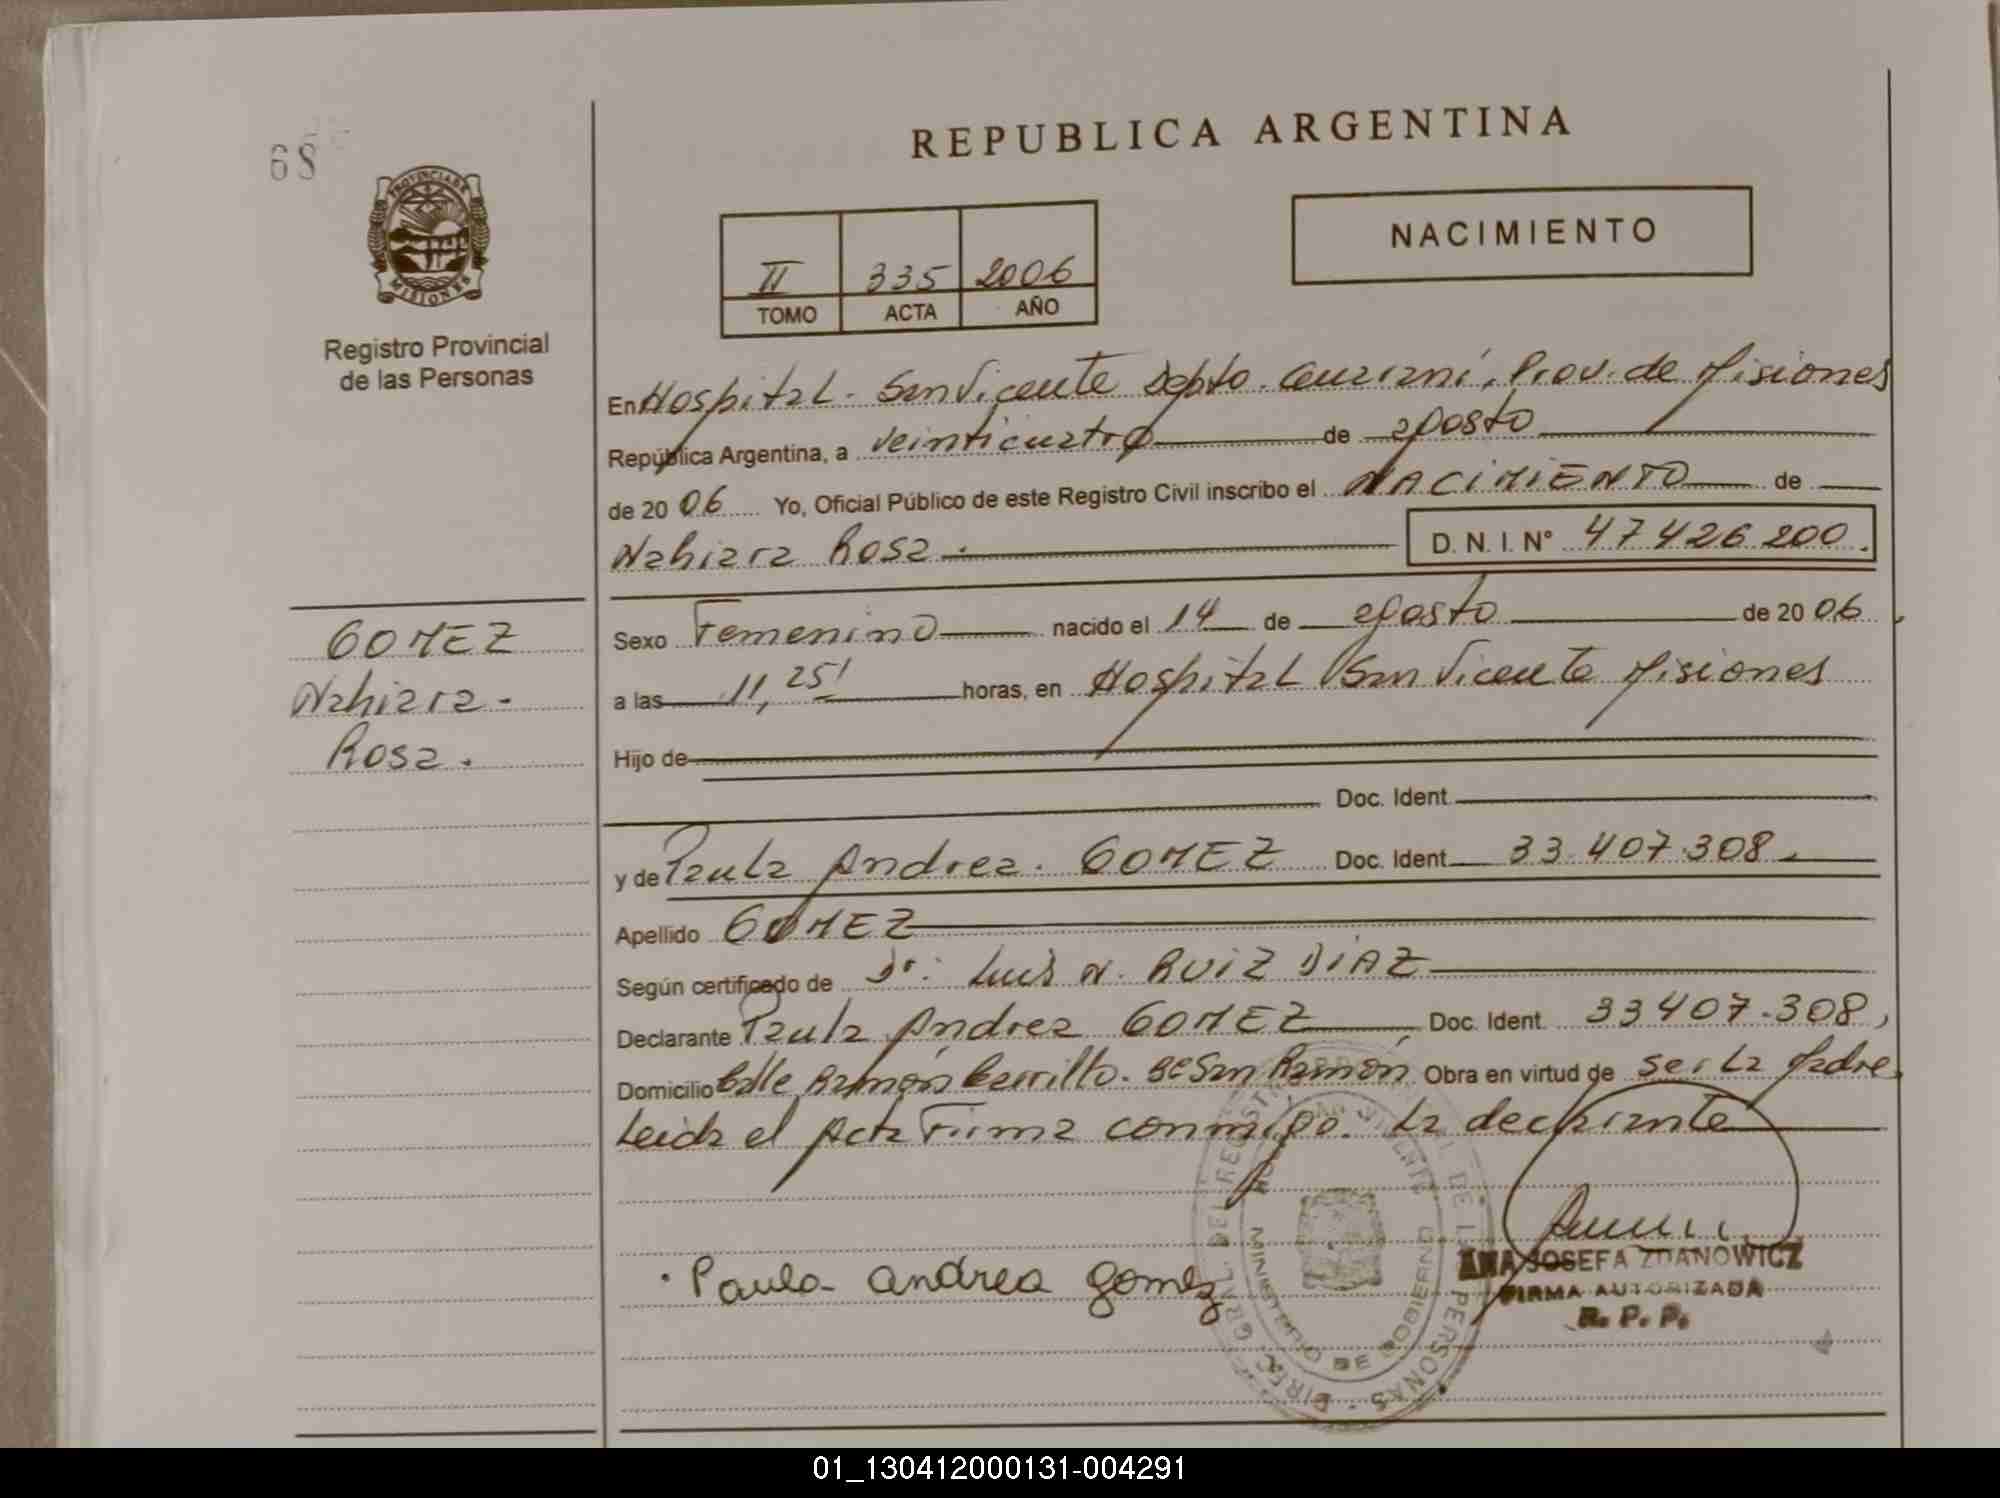 68
REPUBLICA ARGENTINA
PROVINCIA DE MISIONES
NACIMIENTO
II 335 2006
TOMO ACTA AÑO
Registro Provincial
de las Personas
En Hospital - San Vicente Depto. Guaraní, Prov. de Misiones
República Argentina, a veinticuatro de agosto
de 20 06 Yo, Oficial Público de este Registro Civil inscribo el NACIMIENTO de
Nahiara Rosa . D. N. I. N° 47426200.
GOMEZ
Nahiara -
Rosa .
Sexo Femenino nacido el 14 de agosto de 20 06
a las 11,25' horas, en Hospital San Vicente Misiones
Hijo de
Doc. Ident.
y de Paula Andrea . GOMEZ Doc. Ident. 33.407.308.
Apellido GOMEZ
Según certificado de Dr: Luis N. RUIZ DIAZ
Declarante Paula Andrea GOMEZ, Doc. Ident. 33407.308,
Domicilio Calle Ramón Carrillo. Bº San Ramón Obra en virtud de ser la Madre
Leída el Acta Firma conmigo. La declarante
Paula andrea gomez
ANA JOSEFA ZDANOWICZ
FIRMA AUTORIZADA
R. P. P.
DIREC. GRAL. DEL REGISTRO DE LAS PERSONAS
MINISTERIO DE GOBIERNO
01_130412000131-004291